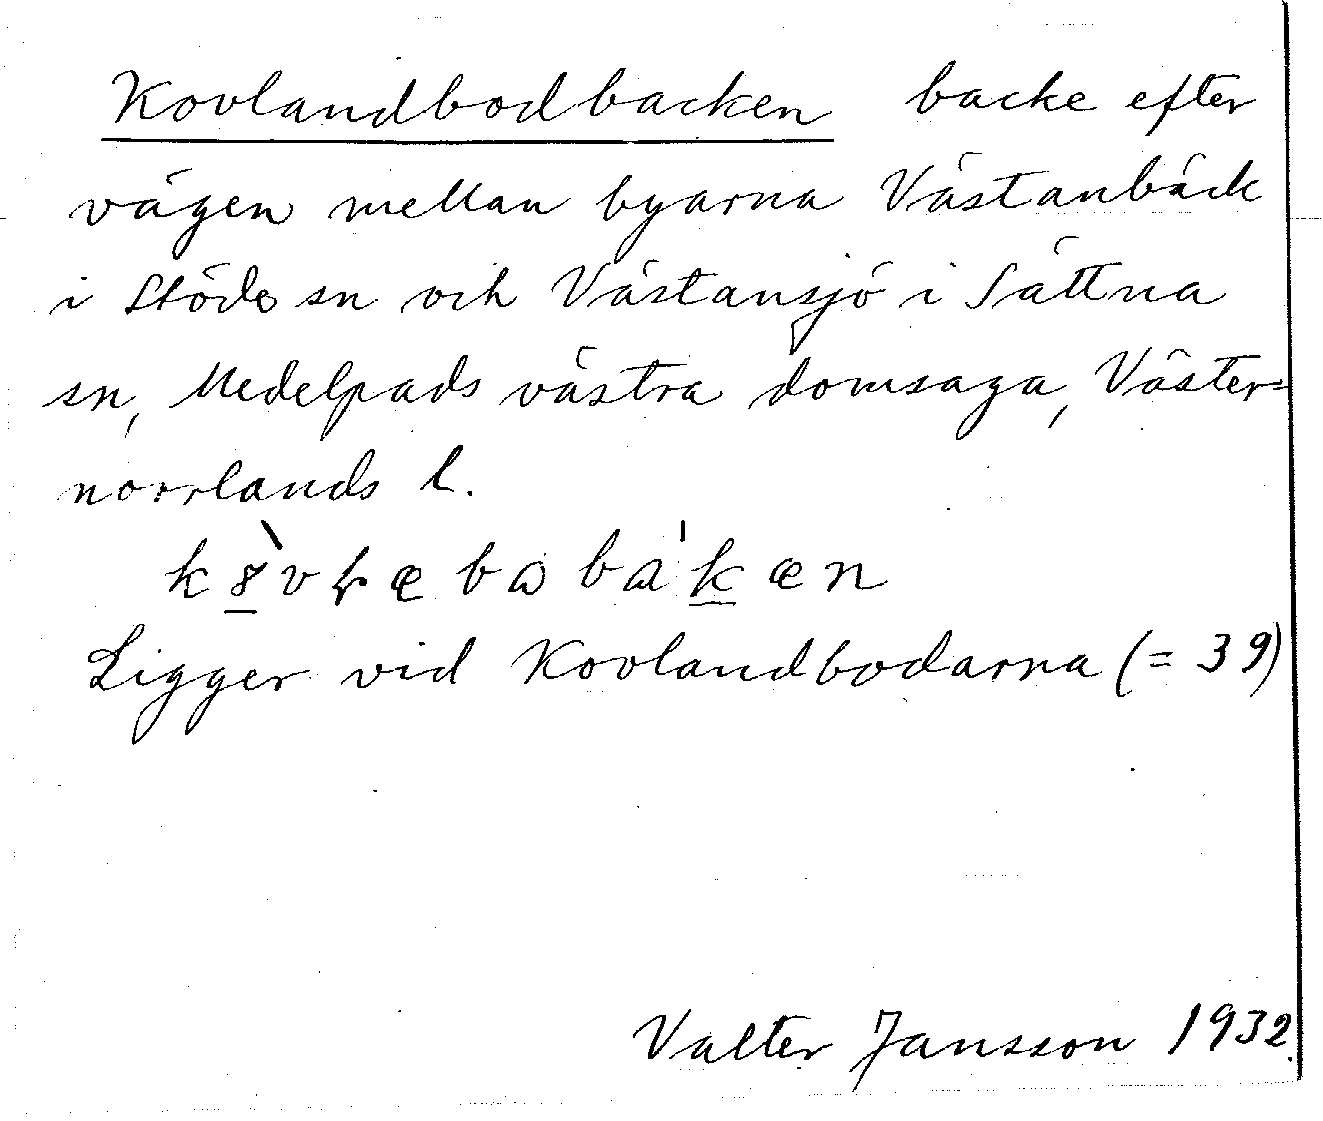 Kovlandbodbacken backe efter
vägen mellan byarna Västanbäck
i Stöde sn och Västansjö i Sättna
sn, Medelpads västra domsaga, Väster=
norrlands l.
Ligger vid Kovlandbodarna (= 39)
Valter Jansson 1932.